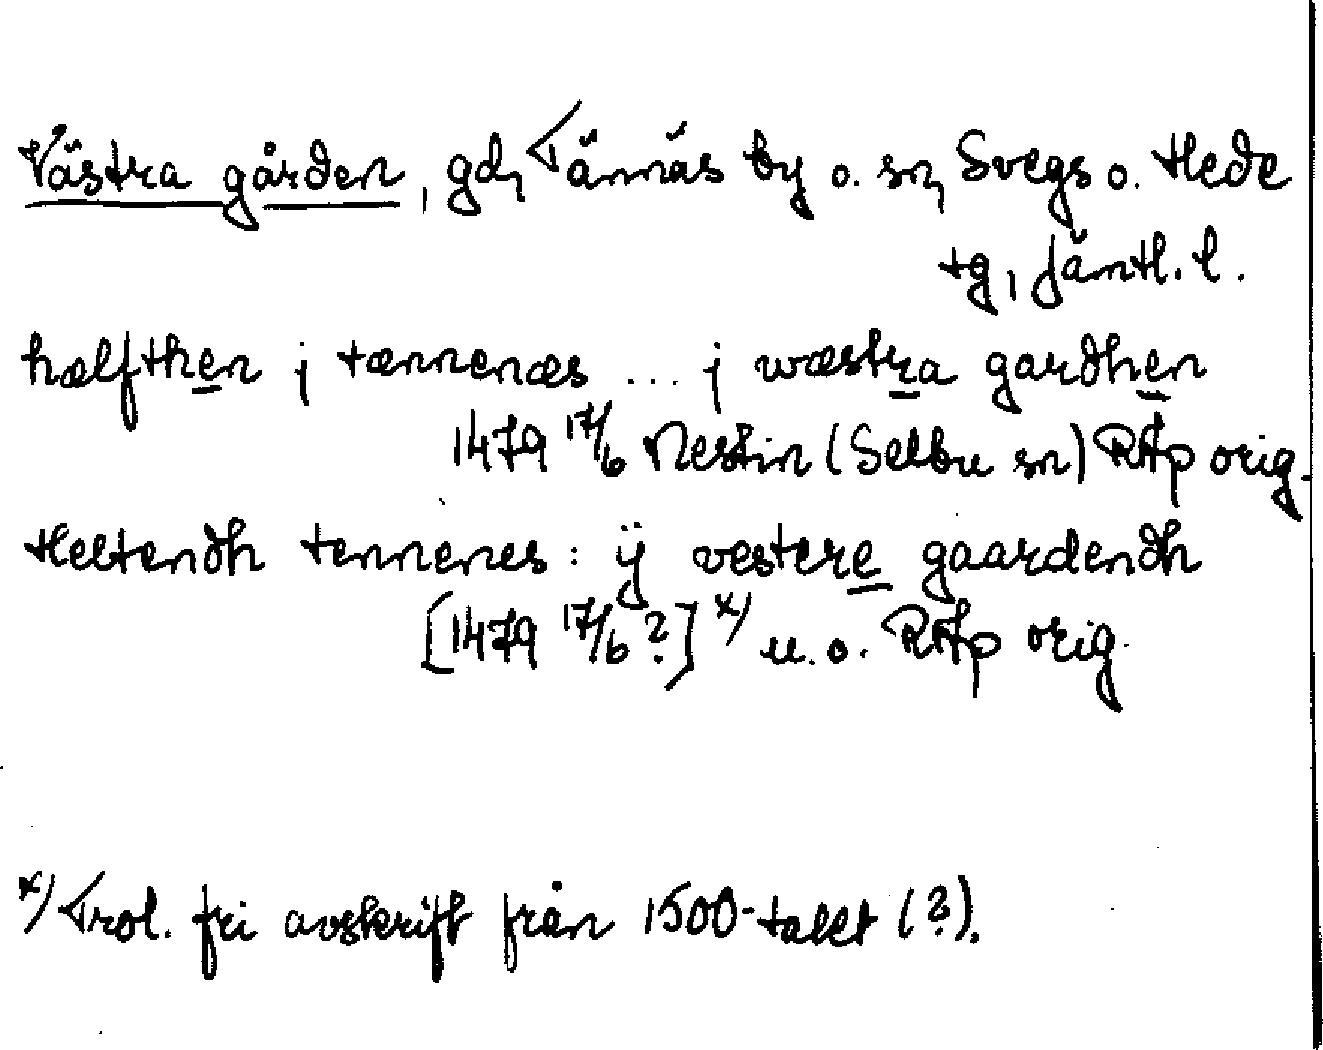 Västra gården, gd, Tännäs by o. sn, Svegs o. Hede
tg, Jämtl. l.
hælfthen j tænnenæs ... j wæstra gardhen
1479 17/6 Nestin (Selbu sn) RAp orig.
Heltendh tennenes : ÿ vestere gaardendh
[1479 17/6 ?] x) u. o. RAp orig.
x) Trol. fri avskrift från 1500-talet (?).